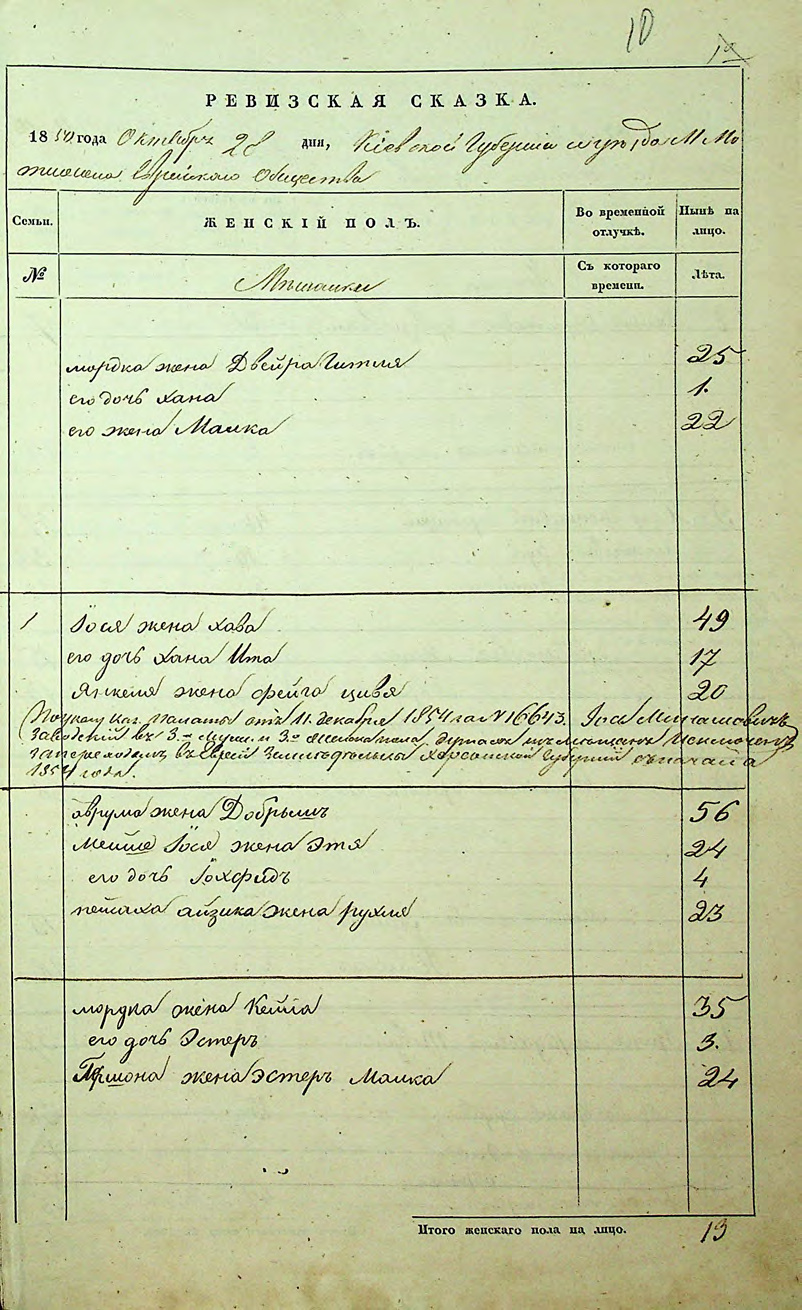 10
РЕВИЗСКАЯ СКАЗКА.
1850 года Октября 28 дня, Кіевской Губерніи М Мо
Еврейского Общества
Семьи. ЖЕНСКІЙ ПОЛЪ. Во временной отлучкѣ. Нынѣ на лицо.
№ Мѣщанки Съ котораго времени. Лѣта.
мордка жена Двейра Гитля 25
его дочь Хана 1.
его жена Малка 22
1 Іося жена Хава 49
его дочь Хана Ита 17
Янкеля жена Фейга Цивя 20
По указу Каз. Палаты отъ 11. декабря 1854 за № 16643.
Заводскій въ 3. Муж. и 3. Женска пола душахъ изъ мѣщанъ исключенъ
за переходомъ въ Еврей Земледѣльцы Херсонской Губерніи съ начала
1854 года.
Аврума жена Добрышъ 56
Мейше Іося жена Этя 24
его дочь 4
пейсаха айзика жена рухля 23
мордка жена Кейла 35
его дочь Эстеръ 3.
Гершона жена Эстеръ Малка 24
Итого женскаго пола на лицо. 13